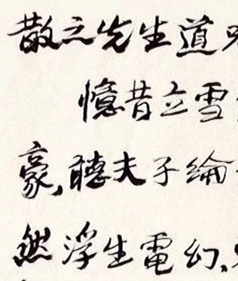 散之先生道
憶昔立雪
豪,聽夫子綸
然浮生電幻,